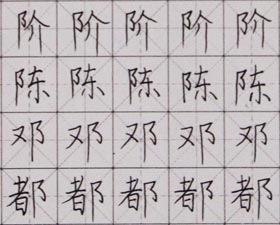 阶阶阶阶阶
陈陈陈陈陈
邓邓邓邓邓
都都都都都